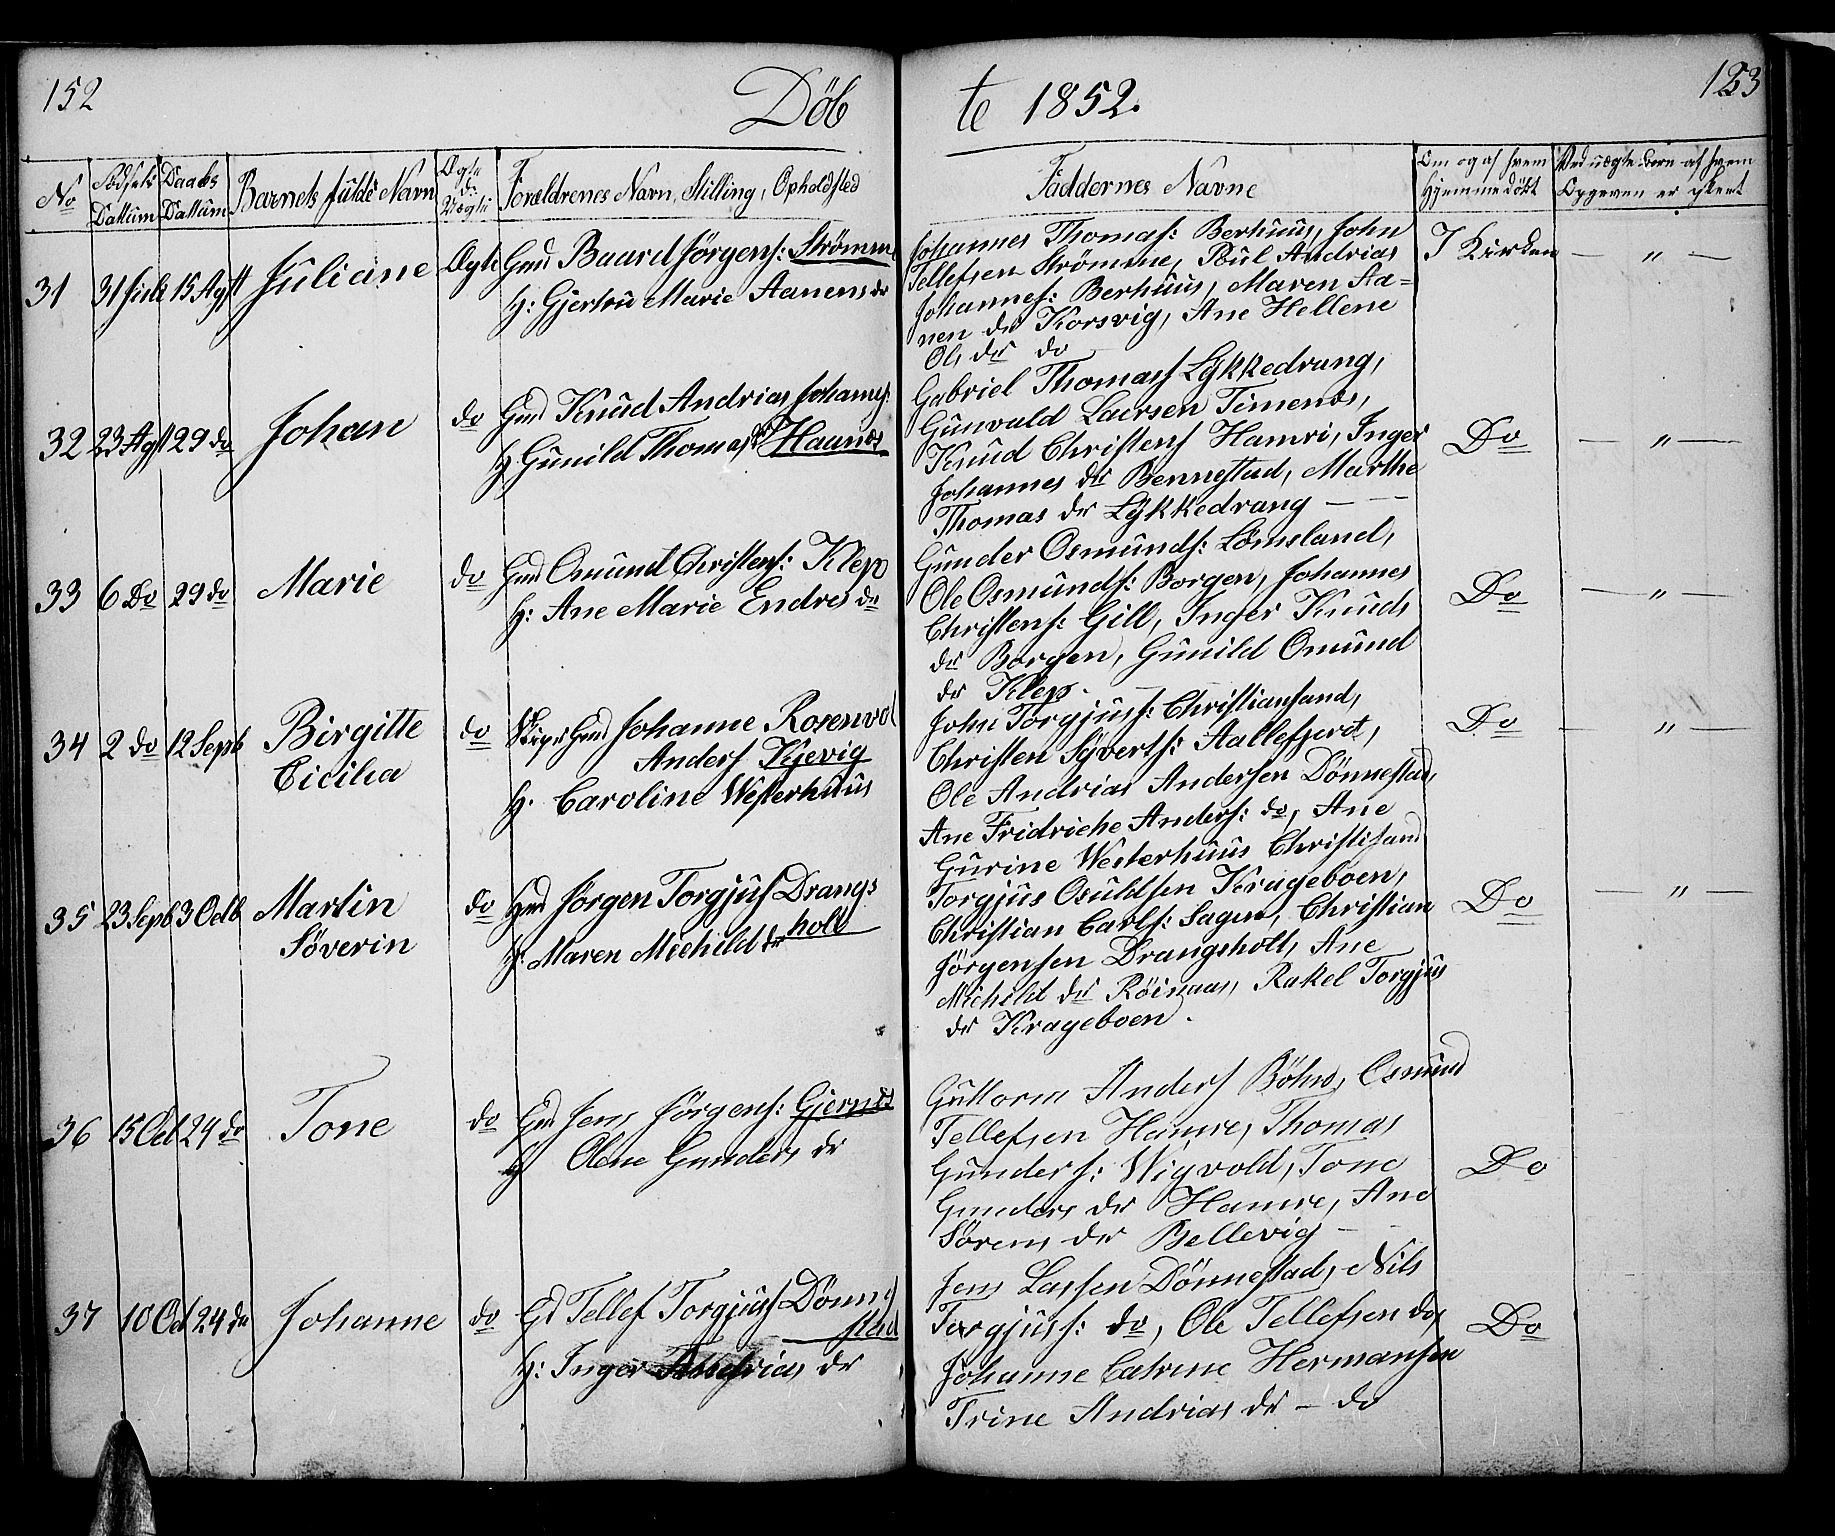 152
Döb
te 1852.
153
No
Födsels Dattum
Daabs Dattum
Barnets fulde Navn
Ægte do Uægte
Forældrenes Navn, Stilling, Opholdsted
Faddernes Navne
Om og af hvem Hjemmedöbt
Ved uægte Born af hvem Opgeven er skeet
31
31 Juli
15 Agst
Juliane
Ægte
Gmd Baard Jörgens: Strömme
H: Gjertru Marie Aanens dr
Johannes Thomas: Berhuus, John
Tellefsen Strömme, Poul Andrias
Johannes: Berhuus, Maren Aa=
nen dr Korsvig, Ane Hellene
Ols dr do
I Kirken
— " —
32
23 Agst
29 do
Johan
do
Gmd Knud Andrias Johanns:
H Gunild Thomas dr Haanes
Gabriel Thomass Lykkedrang,
Gunvald Lairsen Timenes,
Knud Christens Hamri, Inger
Johannes dr Bennestad, Marthe
Thomas dr Lykkedrang —
Do
— " —
33
6 Do
29 do
Marie
do
Gmd Omund Christens: Klep
H: Ane Marie Endres dr
Gunder Osmunds: Lömsland,
Ole Osmunds: Borgen, Johannes
Christens: Gill, Inger Knuds
dr Borgen, Gunild Omund
dr Klep.
Do
— " —
34
2 do
12 Septb
Birgitte
Cicilia
do
Johanne Rosenvol
Anders Kjevig
H. Caroline Westerhuus
John Torgjuss: Christiansand,
Christen Syverts: Aallefjerd,
Ole Andrias Andersen Dönnestad,
Ane Fridriche Anders: do, Ane
Gurine Westerhuus Christisand
Do
— " —
35
23 Septb
3 Octb
Martin
Söverin
do
Hmd Jörgen Torgjus Drangs
holt
H: Maren Michild dr
Torgjus Osuldsen Krageboen,
Christian Carls: Sagen, Christian
Jörgensen Drangsholt, Ane
Michild dr Röinaas, Rakel Torgjus
dr Krageboen.
Do
— " —
36
15 Oct
24 do
Tone
do
Gmd Jens Jörgens: Gjernes
H Olene Gunders dr
Guttorm Anders Böhn, Osmund
Tellefsen Hamre, Thomas
Gunders: Wigvold, Tone
Gunders dr Hamre, Ane
Sörens dr Bellevig —
Do
37
10 Oct
24 do
Johanne
do
Gd Tellef Torgjuss Dönne
stad
H: Inger Andrias dr
Jens Lassen Dönnestad, Nils
Torgjuss: do, Ole Tellefsen do,
Johanne Catrine Hermansen
Trine Andrias dr — do
Do